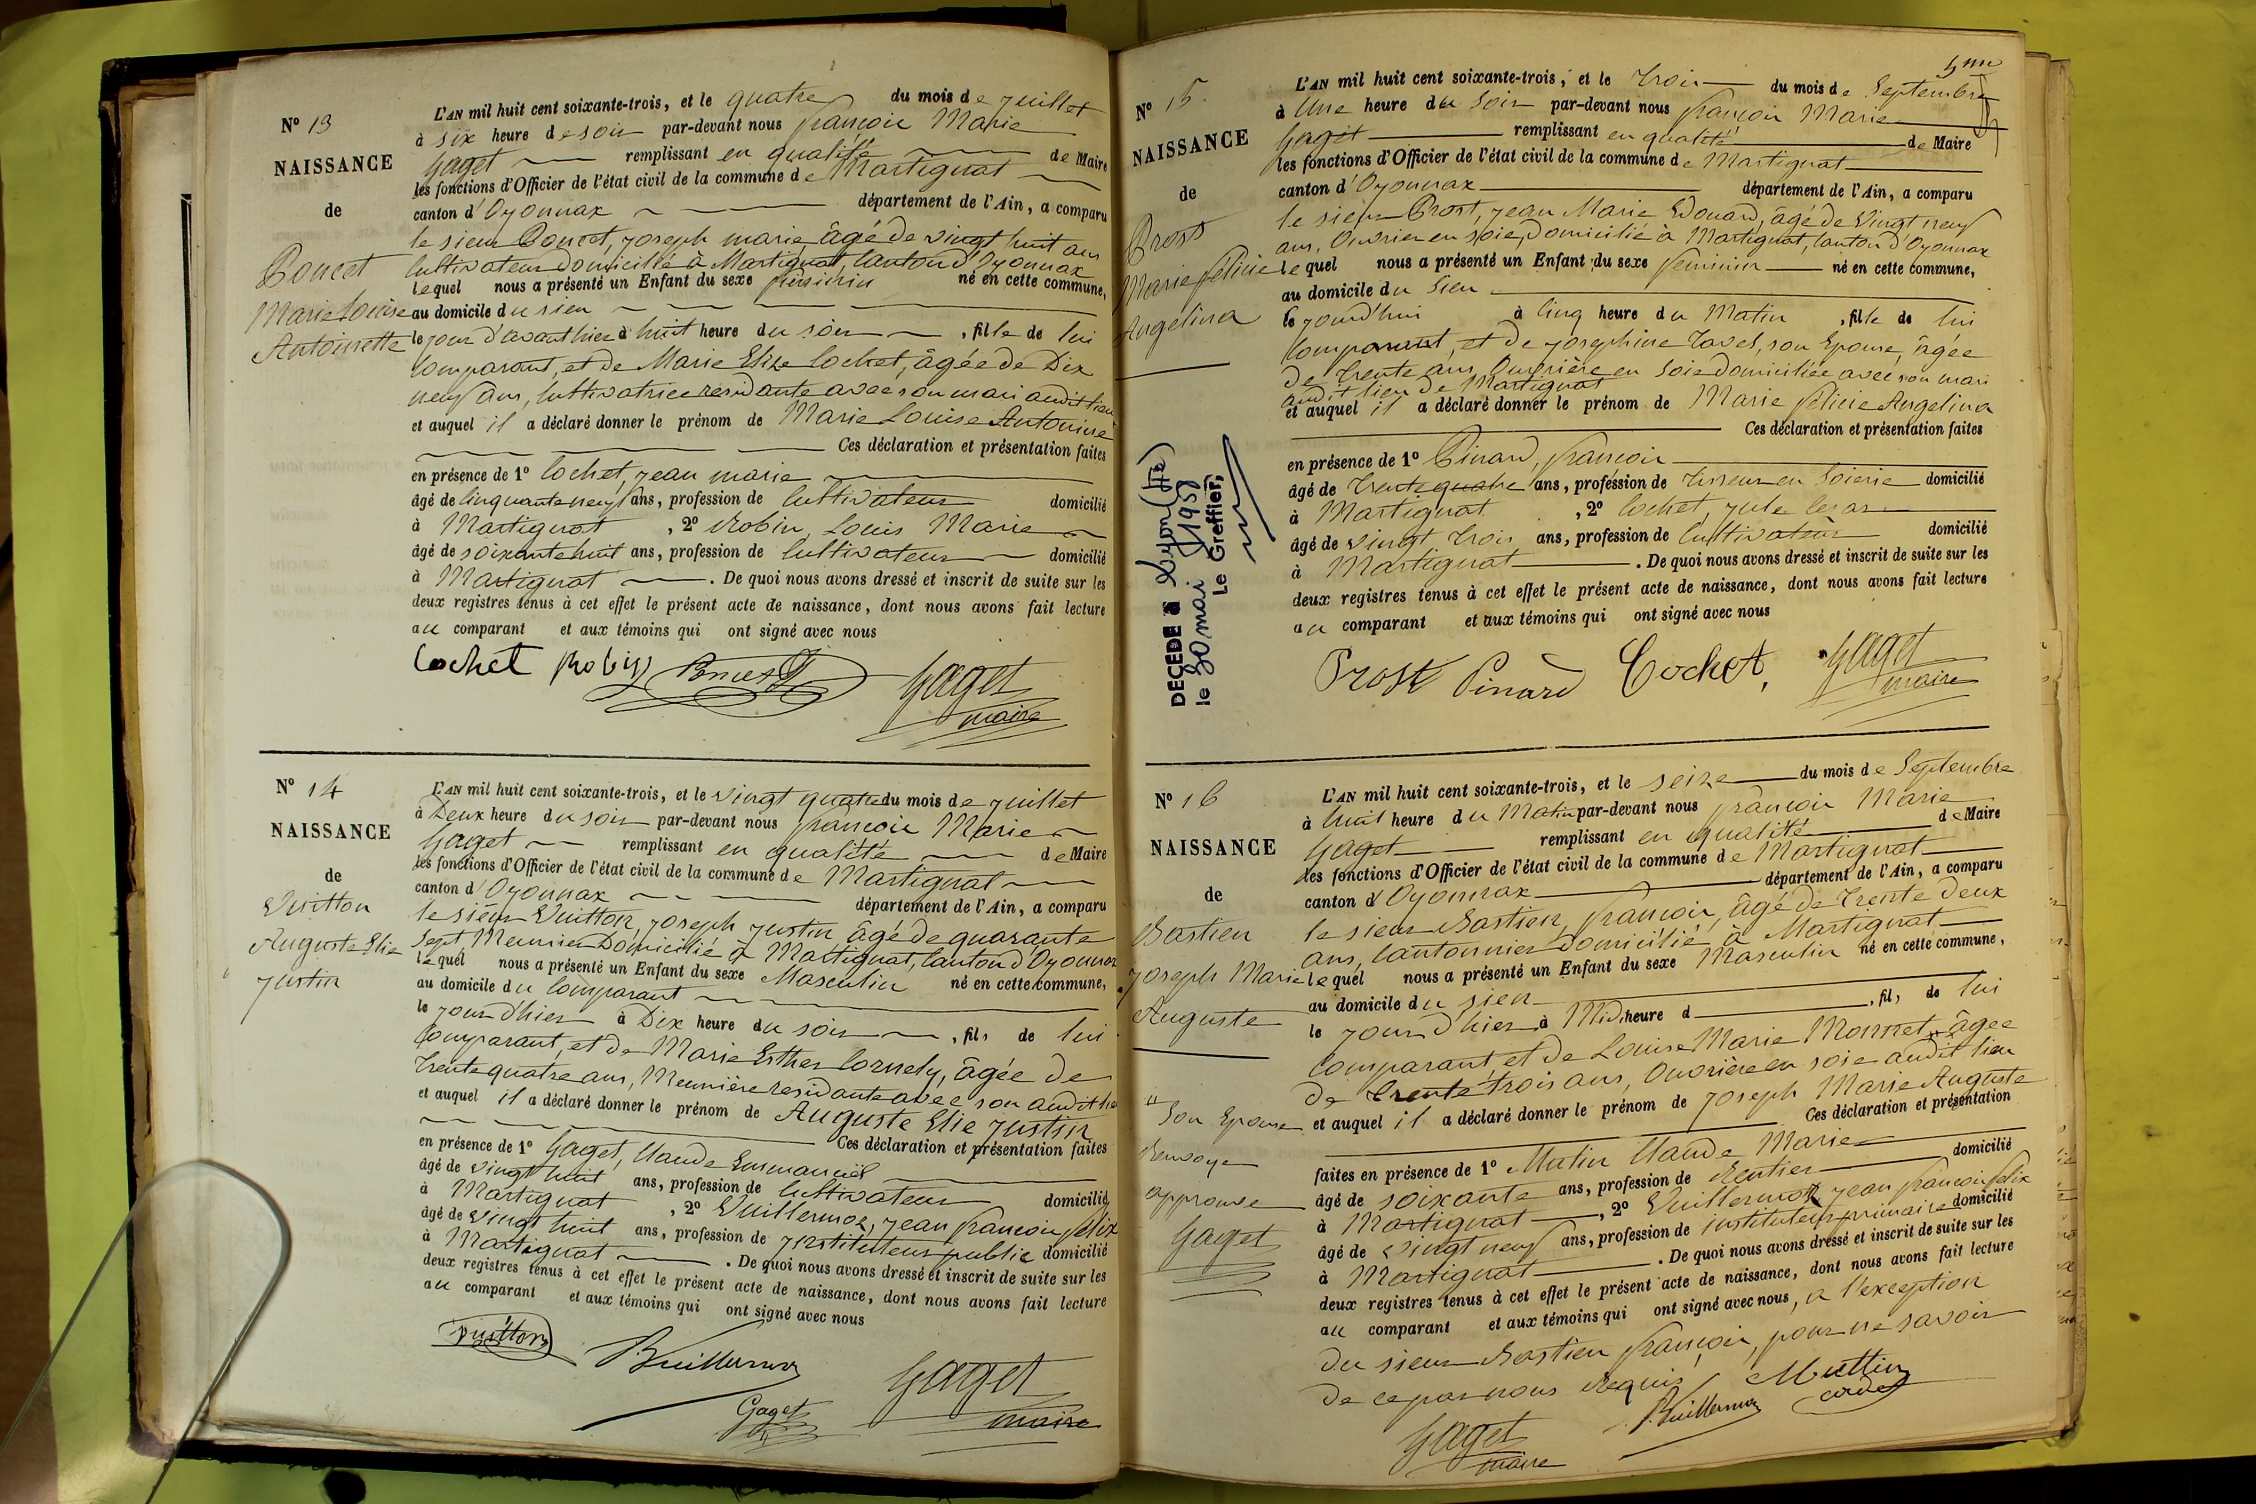 N° 13
NAISSANCE
de
Poncet
Marie Louise
Antoinette
L'AN mil huit cent soixante-trois, et le quatre du mois de Juillet
à six heure de soir par-devant nous françois Marie
Gaget remplissant en qualité de Maire
les fonctions d'Officier de l'état civil de la commune de Martignat
canton d'Oyonnax département de l'Ain, a comparu
le sieur Poncet, Joseph marie, âgé de vingt huit ans
Cultivateur domicilié à Martignat, Canton d'Oyonnax
lequel nous a présenté un Enfant du sexe féminin né en cette commune,
au domicile du sien
le jour d'avant hier à huit heure du soir, fille de lui
Comparant, et de Marie Elize Cochet, âgée de Dix
neuf ans, Cultivatrice residante avec son mari audit lieu
et auquel il a déclaré donner le prénom de Marie Louise Antoinise
Ces déclaration et présentation faites
en présence de 1° Cochet, Jean marie
âgé de Cinquante neuf ans, profession de Cultivateur domicilié
à Martignat, 2° Robin, Louis Marie
âgé de soixante huit ans, profession de Cultivateur domicilié
à Martignat. De quoi nous avons dressé et inscrit de suite sur les
deux registres tenus à cet effet le présent acte de naissance, dont nous avons fait lecture
au comparant et aux témoins qui ont signé avec nous
Cochet Robin Poncet Gaget
maire
N° 14
NAISSANCE
de
Vuitton
Auguste Elie
Justin
L'AN mil huit cent soixante-trois, et le vingt quatre du mois de Juillet
à Deux heure du soir par-devant nous françois Marie
Gaget remplissant en qualité de Maire
les fonctions d'Officier de l'état civil de la commune de Martignat
canton d'Oyonnax département de l'Ain, a comparu
le sieur Vuitton, Joseph Justin âgé de quarante
sept, Meunier Domicilié à Martignat, Canton d'Oyonnax
lequel nous a présenté un Enfant du sexe Masculin né en cette commune,
au domicile du Comparant
le jour d'hier à Dix heure du soir, fils de lui
Comparant, et de Marie Esther Cornely, âgée de
trente quatre ans, Meunière residante avec son audit lieu
et auquel il a déclaré donner le prénom de Auguste Elie Justin
Ces déclaration et présentation faites
en présence de 1° Gaget, Claude Emmanuël
âgé de vingt huit ans, profession de Cultivateur domicilié
à Martignat, 2° Vuillermoz, Jean françois felix
âgé de vingt huit ans, profession de Instituteur public domicilié
à Martignat. De quoi nous avons dressé et inscrit de suite sur les
deux registres tenus à cet effet le présent acte de naissance, dont nous avons fait lecture
au comparant et aux témoins qui ont signé avec nous
Vuitton Vuillermoz Gaget
Gaget maire
N° 15
NAISSANCE
de
Prost
Marie félicie
Angelina
DECEDE à Lyon
le 30 mai 1958
Le Greffier,
5me
L'AN mil huit cent soixante-trois, et le trois du mois de Septembre
à Une heure du Soir par-devant nous françois Marie
Gaget remplissant en qualité de Maire
les fonctions d'Officier de l'état civil de la commune de Martignat
canton d'Oyonnax département de l'Ain, a comparu
le sieur Prost, Jean Marie Edouard, âgé de vingt neuf
ans, Ouvrier en soie, domicilié à Martignat, Canton d'Oyonnax
lequel nous a présenté un Enfant du sexe féminin né en cette commune,
au domicile du sien
ce jourd'hui à Cinq heure du Matin, fille de lui
Comparant, et de Josephine Tavel, son Epouse, âgée
de trente ans, Ouvrière en Soie domiciliée avec son mari
audit lieu de Martignat
et auquel il a déclaré donner le prénom de Marie félicie Angelina
Ces déclaration et présentation faites
en présence de 1° Pinard, françois
âgé de trente quatre ans, profession de tisseur en Soierie domicilié
à Martignat, 2° Cochet, Jule Cesar
âgé de vingt trois ans, profession de Cultivateur domicilié
à Martignat. De quoi nous avons dressé et inscrit de suite sur les
deux registres tenus à cet effet le présent acte de naissance, dont nous avons fait lecture
au comparant et aux témoins qui ont signé avec nous
Prost Pinard Cochet, Gaget
maire
N° 16
NAISSANCE
de
Bastien
Joseph Marie
Auguste
" Son Epouse
Renvoye
approuvé
Gaget
L'AN mil huit cent soixante-trois, et le seize du mois de Septembre
à huit heure du Matin par-devant nous françois Marie
Gaget remplissant en qualité de Maire
les fonctions d'Officier de l'état civil de la commune de Martignat
canton d'Oyonnax département de l'Ain, a comparu
le sieur Bastien, françois, âgé de trente deux
ans, Cantonnier domicilié à Martignat
lequel nous a présenté un Enfant du sexe Masculin né en cette commune,
au domicile du sien
le jour d'hier à Midi heure d, fils de lui
Comparant, et de Louise Marie Monnet, " âgée
de trente trois ans, Ouvrière en soie audit lieu
et auquel il a déclaré donner le prénom de Joseph Marie Auguste
Ces déclaration et présentation
faites en présence de 1° Mutin Claude Marie
âgé de soixante ans, profession de Rentier domicilié
à Martignat, 2° Vuillermoz Jean francois felix
âgé de vingt neuf ans, profession de instituteur primaire domicilié
à Martignat. De quoi nous avons dressé et inscrit de suite sur les
deux registres tenus à cet effet le présent acte de naissance, dont nous avons fait lecture
au comparant et aux témoins qui ont signé avec nous, a l'exception
du sieur Bastien françois, pour ne savoir
de ce par nous Requis / Muttin
Gaget Vuillermoz
maire